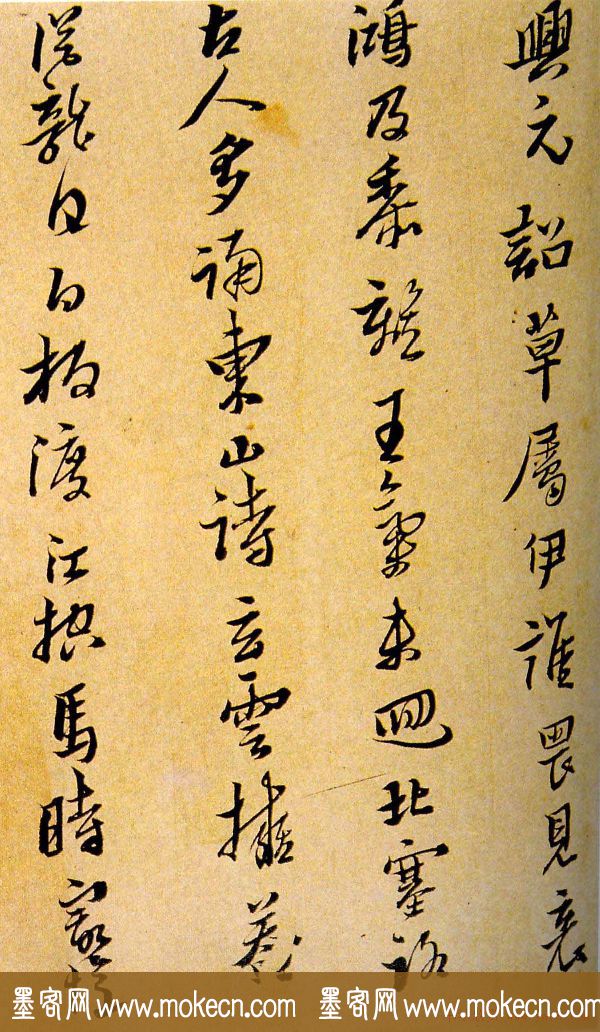 興元詔草屬伊誰畏見哀
鴻及黍離王氣未回北塞
古人多誦東山詩玄雲擁
從龍日白板渡江投馬時
墨客网 www.mokecn.com 墨客网 www.mokecn.com